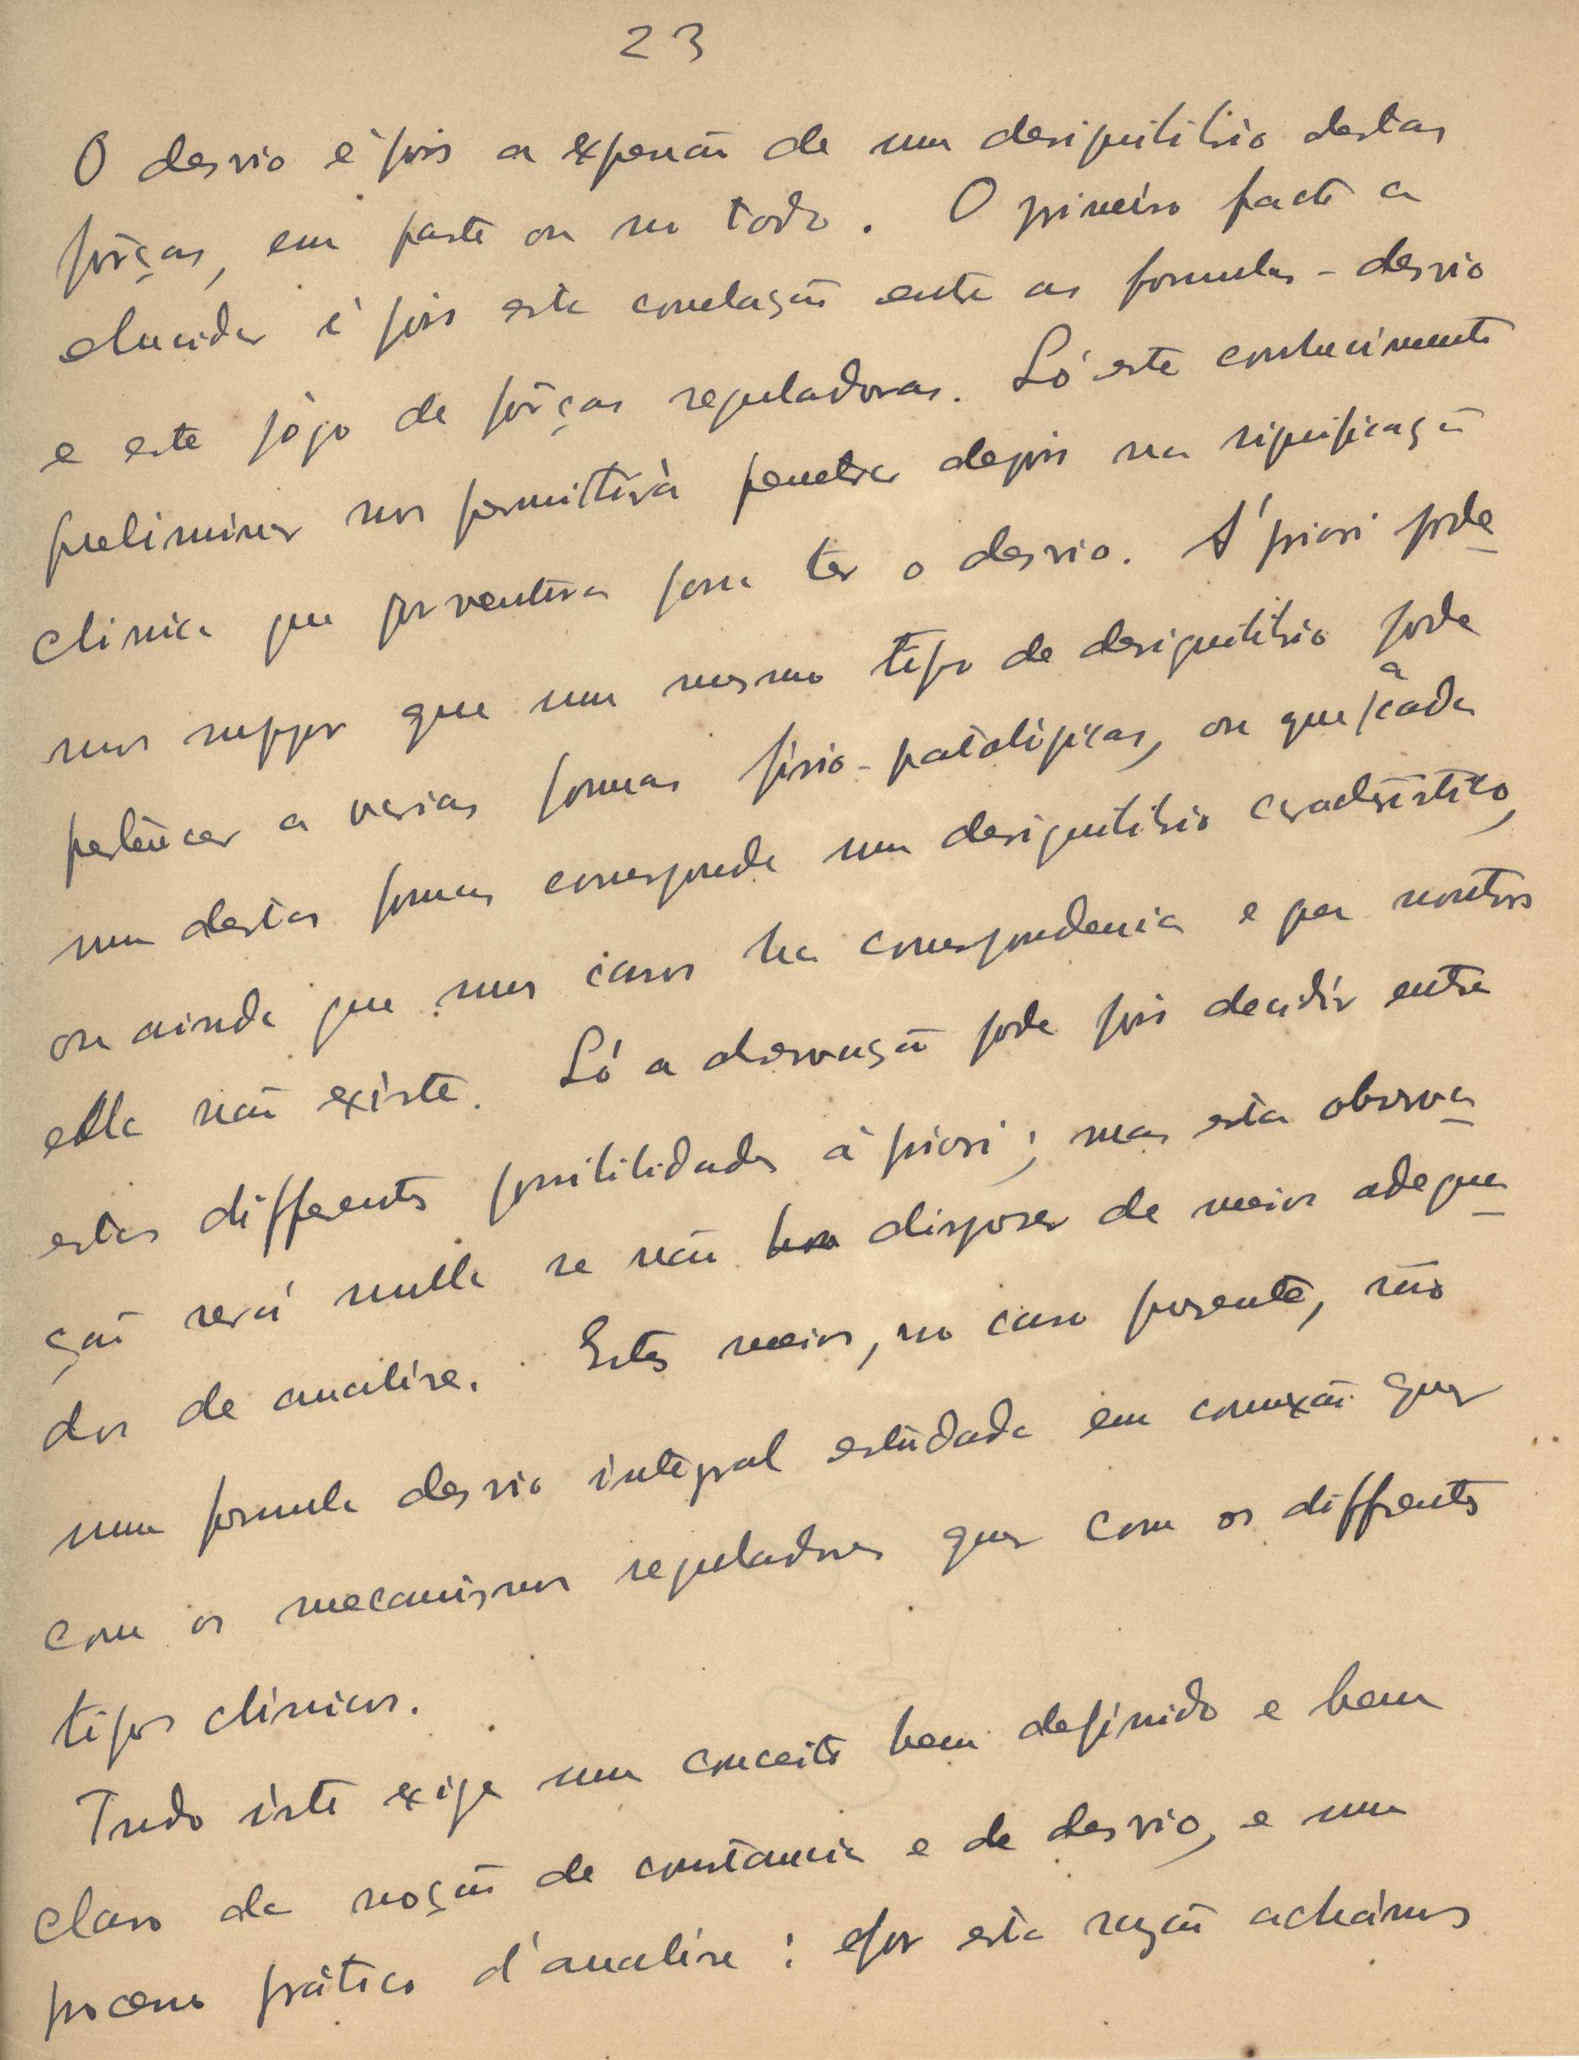 23
O desvio é pois a expressão de um desiquilibrio destas
fôrças, em parte ou no todo. O primeiro facto a
elucidar é pois esta correlação entre as formulas-desvio
e este jôgo de fôrças reguladoras. Só este conhecimento
preliminar nos permittirá penetrar depois na significação
clinica que porventura possa ter o desvio. A' priori pode_
mos suppor que um mesmo tipo de desiquilibrio pode
pertencer a varias formas fisio-patológicas, ou que a cada
uma destas formas corresponde um desiquilibrio caracteristico,
ou ainda que nuns casos ha correspondencia e que noutros
ella não existe. Só a observação pode pois decidir entre
estas differentes possibilidades à priori; mas esta observa_
ção será nulla se não dispozer de meios adequa_
dos de analise. Estes meios, no caso presente, são
uma formula desvio integral estudada em connexão quer
com os mecanismos reguladores quer com os differentes
tipos clinicos.
Tudo isto exige um conceito bem definido e bem
claro da noção de constancia e de desvio, e um
processo prático d'analise: e por esta razão achámos